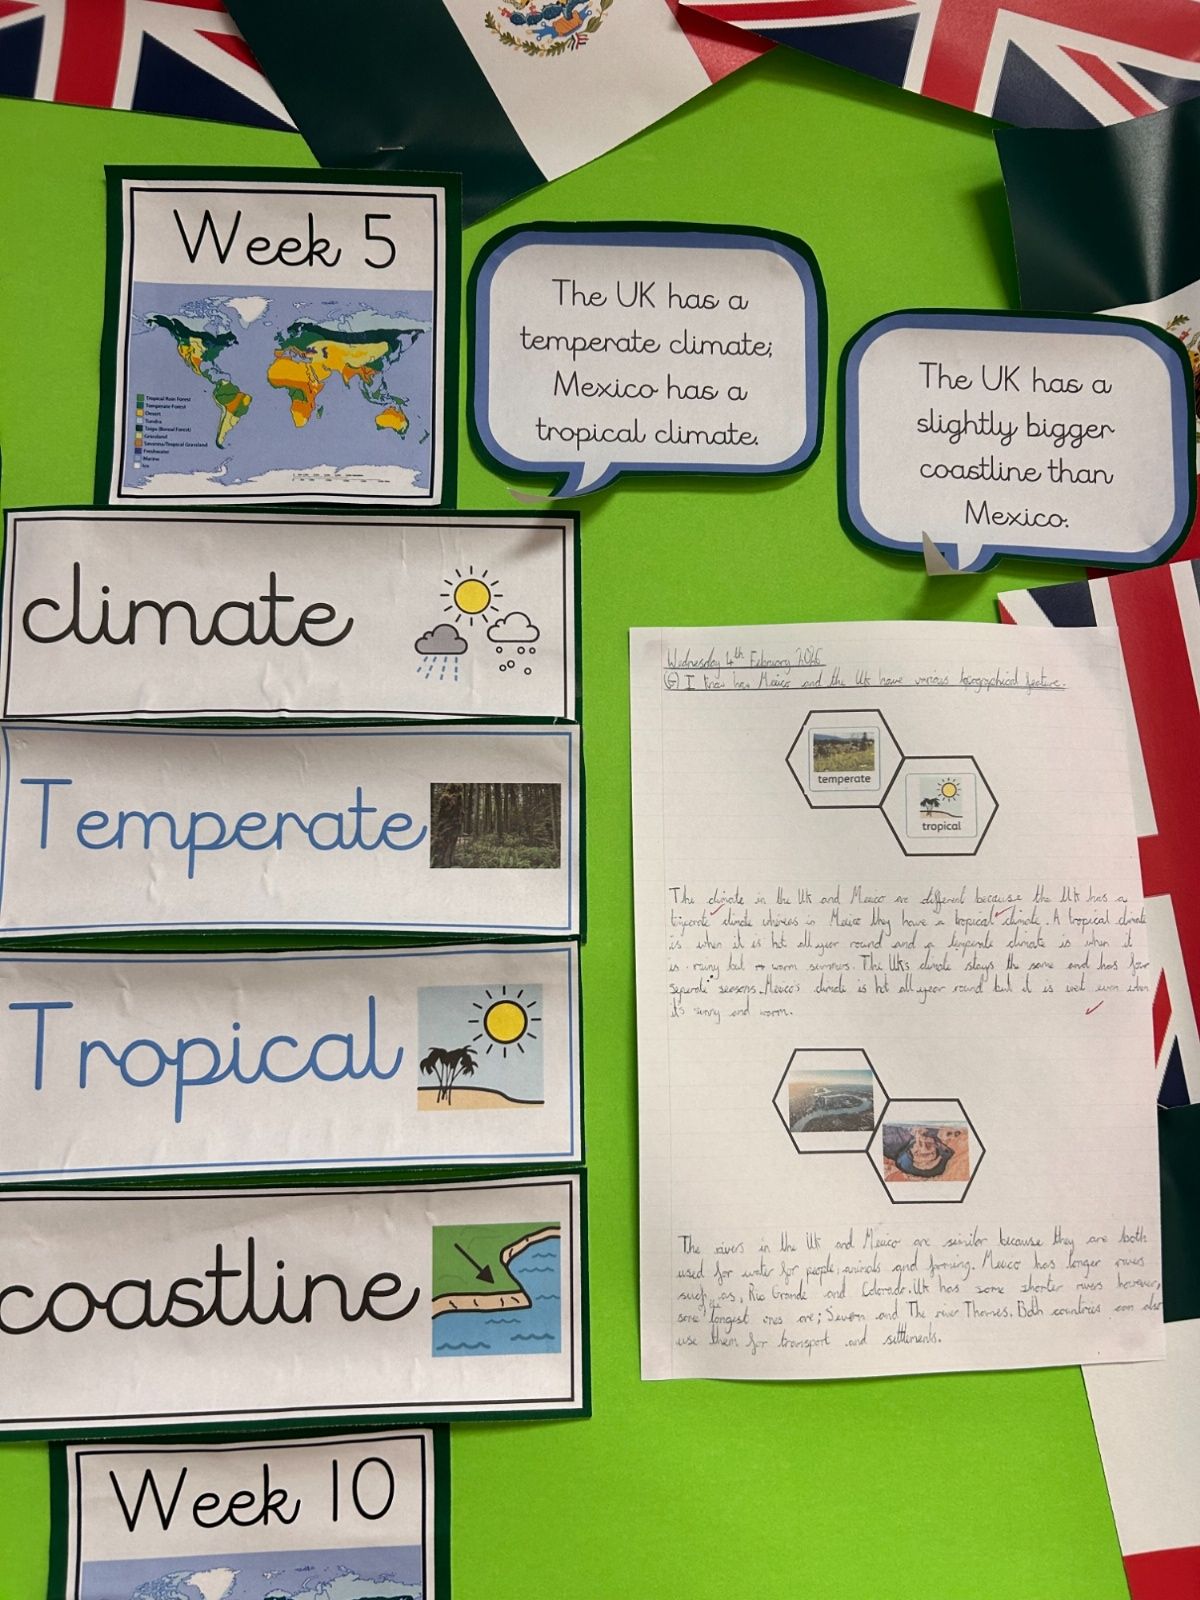 Week 5
Tropical Rain Forest
Temperate Forest
Desert
Tundra
Taiga (Boreal Forest)
Grassland
Savanna/Tropical Grassland
Freshwater
Marine
Ice
The UK has a
temperate climate;
Mexico has a
tropical climate.
The UK has a
slightly bigger
coastline than
Mexico.
climate
Temperate
Tropical
coastline
Week 10
Wednesday 4th February 2026
(G) I know how Mexico and the UK have various topographical feature.
temperate
tropical
The climate in the UK and Mexico are different because the UK has a
climate whereas in Mexico they have a tropical climate. A tropical climate
is when it is hot all year round and a temperate climate is when it
is rainy but warm summers. The UK's climate stays the same and has four
seperate seasons. Mexico's climate is hot all year round but it is wet even when
it's sunny and warm.
The rivers in the UK and Mexico are similar because they are both
used for water for people, animals and farming. Mexico has longer rivers
such as, Rio Grande and Colorado. UK has some shorter rivers however,
some longest ones are; Severn and The river Thames. Both countries can also
use them for transport and settlements.